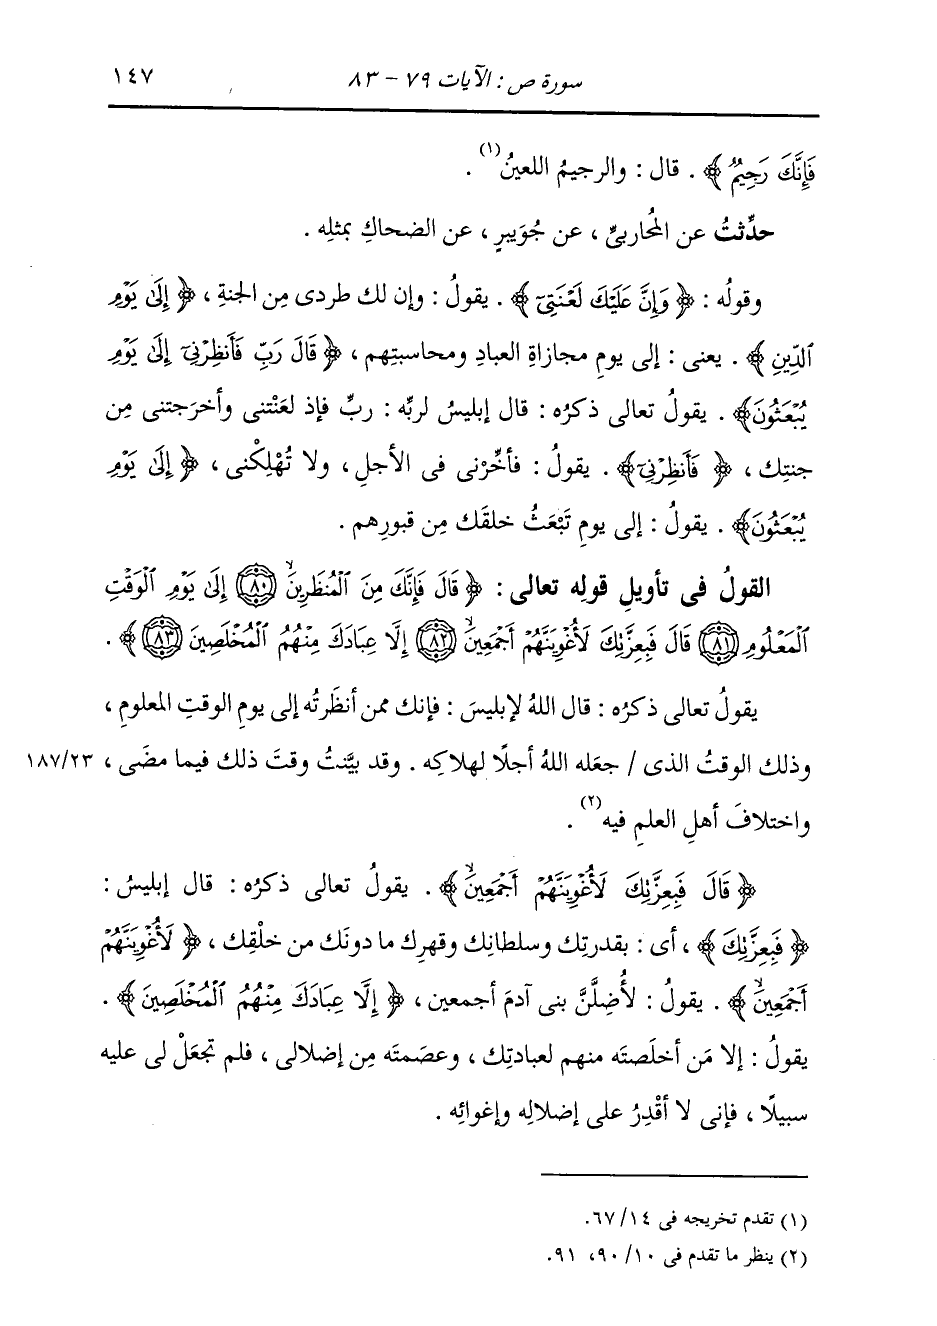 سورة ص : الآيات ٧٩ - ٨٣ ١٤٧
فَإِنَّكَ رَجِيمٌ ﴾ . قال : والرجيمُ اللعينُ (١) .
حدِّثتُ عن المُحاربيِّ ، عن جُوَيبرٍ ، عن الضحاكِ بمثلِه .
وقولُه : ﴿ وَإِنَّ عَلَيْكَ لَعْنَتِيٓ ﴾ . يقولُ : وإن لك طردى مِن الجنةِ ، ﴿ إِلَىٰ يَوْمِ
ٱلدِّينِ ﴾ . يعنى : إلى يومِ مجازاةِ العبادِ ومحاسبتِهم ، ﴿ قَالَ رَبِّ فَأَنظِرْنِيٓ إِلَىٰ يَوْمِ
يُبْعَثُونَ ﴾ . يقولُ تعالى ذكرُه : قال إبليسُ لربِّه : ربِّ فإذ لعَنْتنى وأخرَجتنى مِن
جنتِك ، ﴿ فَأَنظِرْنِيٓ ﴾ . يقولُ : فأخِّرْنى فى الأجلِ ، ولا تُهْلِكْنى ، ﴿ إِلَىٰ يَوْمِ
يُبْعَثُونَ ﴾ . يقولُ : إلى يومِ تَبْعَثُ خلقَك مِن قبورِهم .
القولُ فى تأويلِ قولِه تعالى : ﴿ قَالَ فَإِنَّكَ مِنَ ٱلْمُنظَرِينَۙ ٨٠ إِلَىٰ يَوْمِ ٱلْوَقْتِ
ٱلْمَعْلُومِ ٨١ قَالَ فَبِعِزَّتِكَ لَأُغْوِيَنَّهُمْ أَجْمَعِينَۙ ٨٢ إِلَّا عِبَادَكَ مِنْهُمُ ٱلْمُخْلَصِينَ ٨٣ ﴾ .
يقولُ تعالى ذكرُه : قال اللهُ لإبليسَ : فإنك ممن أنظَرتُه إلى يومِ الوقتِ المعلومِ ،
وذلك الوقتُ الذى / جعَله اللهُ أجلًا لهلاكِه . وقد بيَّنتُ وقتَ ذلك فيما مضَى ، ١٨٧/٢٣
واختلافَ أهلِ العلمِ فيه (٢) .
﴿ قَالَ فَبِعِزَّتِكَ لَأُغْوِيَنَّهُمْ أَجْمَعِينَۙ ﴾ . يقولُ تعالى ذكرُه : قال إبليسُ :
﴿ فَبِعِزَّتِكَ ﴾ ، أى : بقدرتِك وسلطانِك وقهرِك ما دونَك من خلْقِك ، ﴿ لَأُغْوِيَنَّهُمْ
أَجْمَعِينَۙ ﴾ . يقولُ : لأُضِلَّنَّ بنى آدمَ أجمعين ، ﴿ إِلَّا عِبَادَكَ مِنْهُمُ ٱلْمُخْلَصِينَ ﴾ .
يقولُ : إلا مَن أخلَصتَه منهم لعبادتِك ، وعصَمتَه مِن إضلالى ، فلم تجعَلْ لى عليه
سبيلًا ، فإنى لا أقْدِرُ على إضلالِه وإغوائِه .
(١) تقدم تخريجه فى ٦٧/١٤.
(٢) ينظر ما تقدم فى ٩٠/١٠، ٩١.